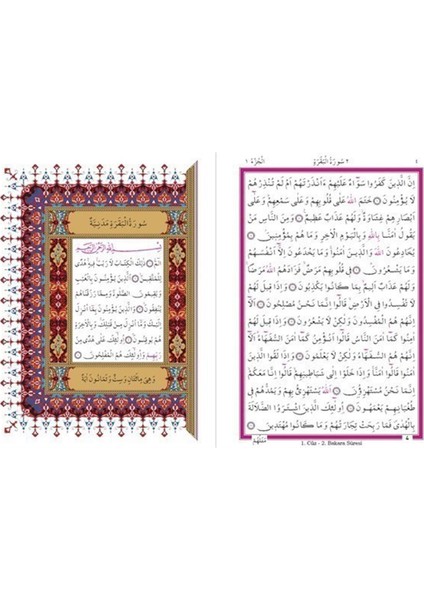 سُورَةُ الْبَقَرَةِ مَدَنِيَّةٌ
بِسْمِ اللّٰهِ الرَّحْمٰنِ الرَّحِيمِ
الٓمٓ ذٰلِكَ الْكِتَابُ لَا رَيْبَ فِيهِ هُدًى
لِلْمُتَّقِينَ اَلَّذِينَ يُؤْمِنُونَ بِالْغَيْبِ
وَيُقِيمُونَ الصَّلٰوةَ وَمِمَّا رَزَقْنَاهُمْ
يُنْفِقُونَ وَالَّذِينَ يُؤْمِنُونَ بِمَٓا اُنْزِلَ
اِلَيْكَ وَمَٓا اُنْزِلَ مِنْ قَبْلِكَ وَبِالْاٰخِرَةِ
هُمْ يُوقِنُونَ اُو۬لٰٓئِكَ عَلٰى هُدًى مِنْ
رَبِّهِمْ وَاُو۬لٰٓئِكَ هُمُ الْمُفْلِحُونَ
وَهِيَ مِائَتَانِ وَسِتٌّ وَثَمَانُونَ اٰيَةً
اَلْجُزْءُ ١ ٢ سُورَةُ الْبَقَرَةِ
اِنَّ الَّذِينَ كَفَرُوا سَوَٓاءٌ عَلَيْهِمْ ءَاَنْذَرْتَهُمْ اَمْ لَمْ تُنْذِرْهُمْ
لَا يُؤْمِنُونَ خَتَمَ اللّٰهُ عَلٰى قُلُوبِهِمْ وَعَلٰى سَمْعِهِمْ وَعَلٰٓى
اَبْصَارِهِمْ غِشَاوَةٌ وَلَهُمْ عَذَابٌ عَظِيمٌ وَمِنَ النَّاسِ مَنْ
يَقُولُ اٰمَنَّا بِاللّٰهِ وَبِالْيَوْمِ الْاٰخِرِ وَمَا هُمْ بِمُؤْمِنِينَ
يُخَادِعُونَ اللّٰهَ وَالَّذِينَ اٰمَنُوا وَمَا يَخْدَعُونَ اِلَّٓا اَنْفُسَهُمْ
وَمَا يَشْعُرُونَ فِي قُلُوبِهِمْ مَرَضٌ فَزَادَهُمُ اللّٰهُ مَرَضًا
وَلَهُمْ عَذَابٌ اَلِيمٌ بِمَا كَانُوا يَكْذِبُونَ وَاِذَا قِيلَ لَهُمْ
لَا تُفْسِدُوا فِي الْاَرْضِ قَالُٓوا اِنَّمَا نَحْنُ مُصْلِحُونَ اَلَٓا
اِنَّهُمْ هُمُ الْمُفْسِدُونَ وَلٰكِنْ لَا يَشْعُرُونَ وَاِذَا قِيلَ لَهُمْ
اٰمِنُوا كَمَٓا اٰمَنَ النَّاسُ قَالُٓوا اَنُؤْمِنُ كَمَٓا اٰمَنَ السُّفَهَٓاءُ اَلَٓا
اِنَّهُمْ هُمُ السُّفَهَٓاءُ وَلٰكِنْ لَا يَعْلَمُونَ وَاِذَا لَقُوا
الَّذِينَ اٰمَنُوا قَالُٓوا اٰمَنَّا وَاِذَا خَلَوْا اِلٰى شَيَاطِينِهِمْ قَالُٓوا اِنَّا مَعَكُمْ
اِنَّمَا نَحْنُ مُسْتَهْزِؤُنَ اَللّٰهُ يَسْتَهْزِئُ بِهِمْ وَيَمُدُّهُمْ فِي
طُغْيَانِهِمْ يَعْمَهُونَ اُو۬لٰٓئِكَ الَّذِينَ اشْتَرَوُا الضَّلَالَةَ
بِالْهُدٰى فَمَا رَبِحَتْ تِجَارَتُهُمْ وَمَا كَانُوا مُهْتَدِينَ
مَثَلُهُمْ
1. Cüz - 2. Bakara Sûresi